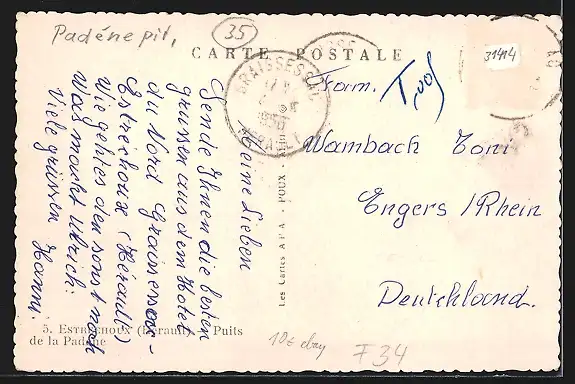 Padénepit,
35
CARTE POSTALE
31414
GRAISSESSAC
HÉRAULT
Fam.
Wambach Toni
Engers /Rhein
Deutschland.
Meine Lieben
Sende Ihnen die besten
grüssen aus dem Hotel
du Nord Graissessac-
Estréchoux (Hérault)
wie gehtes den sonst noch
Was macht Ulrich.
Viele grüssen Hanni
Les Cartes APA - POUX
5. ESTRÉCHOUX (Hérault) - Puits
de la Padène
10€ ebay
F34